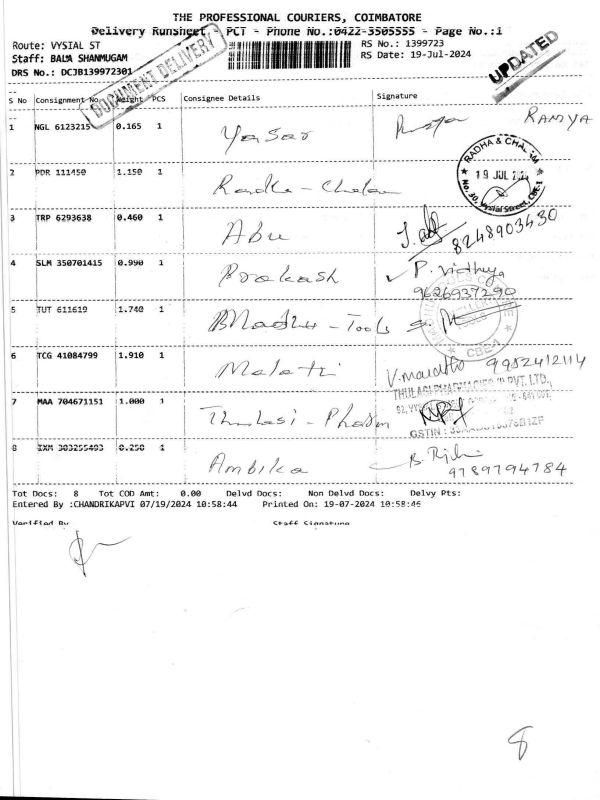 THE PROFESSIONAL COURIERS, COIMBATORE
Delivery Runsheet - PCT - Phone No.:0422-3505555 - Page No.:1
Route: VYSIAL ST
RS No.: 1399723
Staff: BALA SHANMUGAM
RS Date: 19-Jul-2024
DRS No.: DCJB139972301
DOCUMENT DELIVERY
UPDATED
S No Consignment No. Weight PCS Consignee Details Signature
1 NGL 6123215 0.165 1 Yasar RAMYA
RADHA & CHELAM
19 JUL 2024
No. 30, Vysial Street, CBE-1
2 PDR 111450 1.150 1 Radha - Chelam
3 TRP 6293638 0.460 1 Abu
8248903430
4 SLM 350701415 0.990 1 Prakash P. Vidhya
9626937290
5 TUT 611619 1.740 1 Madhu - Tools
CBE-1
6 TCG 41084799 1.910 1 Malathi
9952412114
7 MAA 704671151 1.000 1 Thulasi - Pharm
THULASI PHARMACIES PVT. LTD.,
GSTIN :
8 IXM 303255493 0.250 1 Ambika
9789794784
Tot Docs: 8 Tot COD Amt: 0.00 Delvd Docs: Non Delvd Docs: Delvy Pts:
Entered By :CHANDRIKAPVI 07/19/2024 10:58:44 Printed On: 19-07-2024 10:58:46
Verified By Staff Signature
8